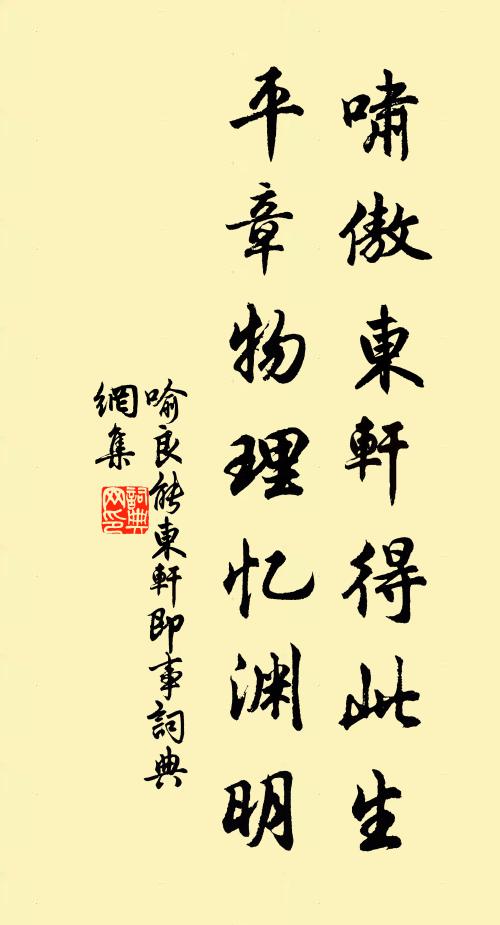 嘯傲東軒得此生
平章物理忆渊明
喻良能東軒即事詞典
網集
詞典
网印